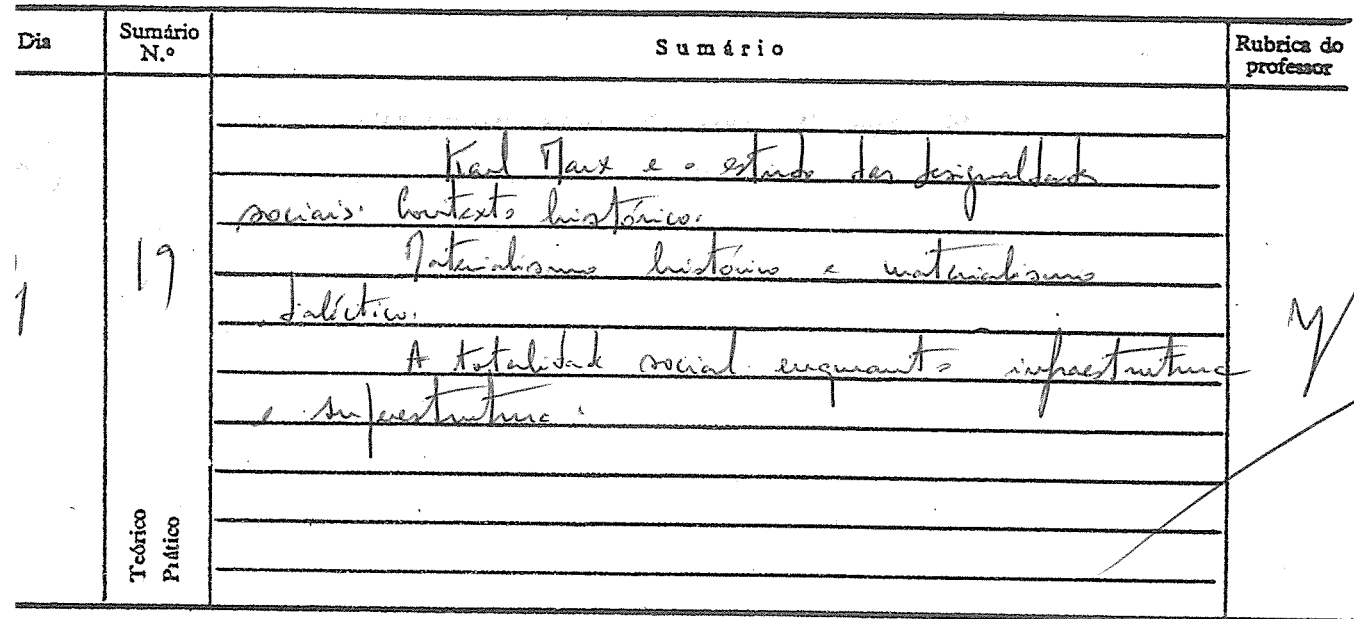 Dia
Sumário N.º
Sumário
Rubrica do professor
Karl Marx e o estudo das desigualdades
sociais. Contexto histórico.
19
Materialismo histórico e materialismo
dialéctico.
1
A totalidade social enquanto infraestrutura
e superestrutura.
Teórico
Prático